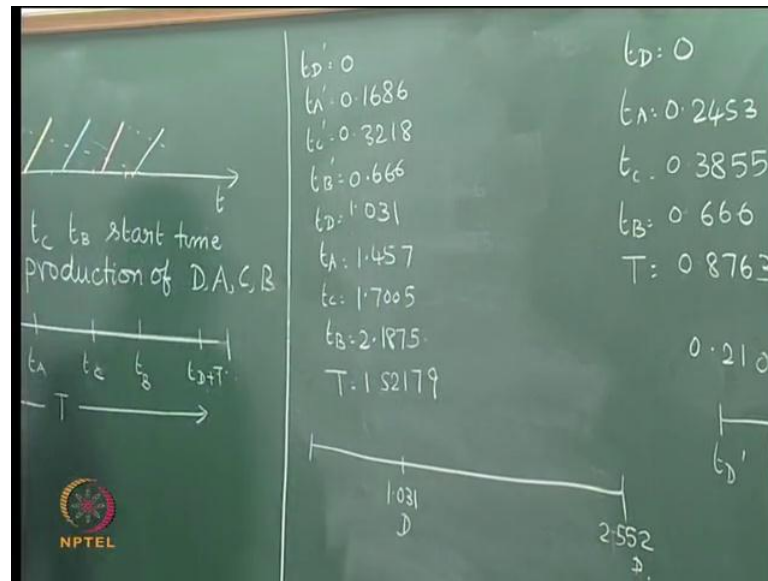 t
tc tB start time
production of D, A, C, B
tA tc tB tD+T
T
tD': 0
tA': 0.1686
tc': 0.3218
tB': 0.666
tD: 1.031
tA: 1.457
tc: 1.7005
tB: 2.1875
T: 1.52179
1.031
D
2.552
D
tD: 0
tA: 0.2453
tc. 0.3855
tB: 0.666
T: 0.8763
0.210
tD'
NPTEL